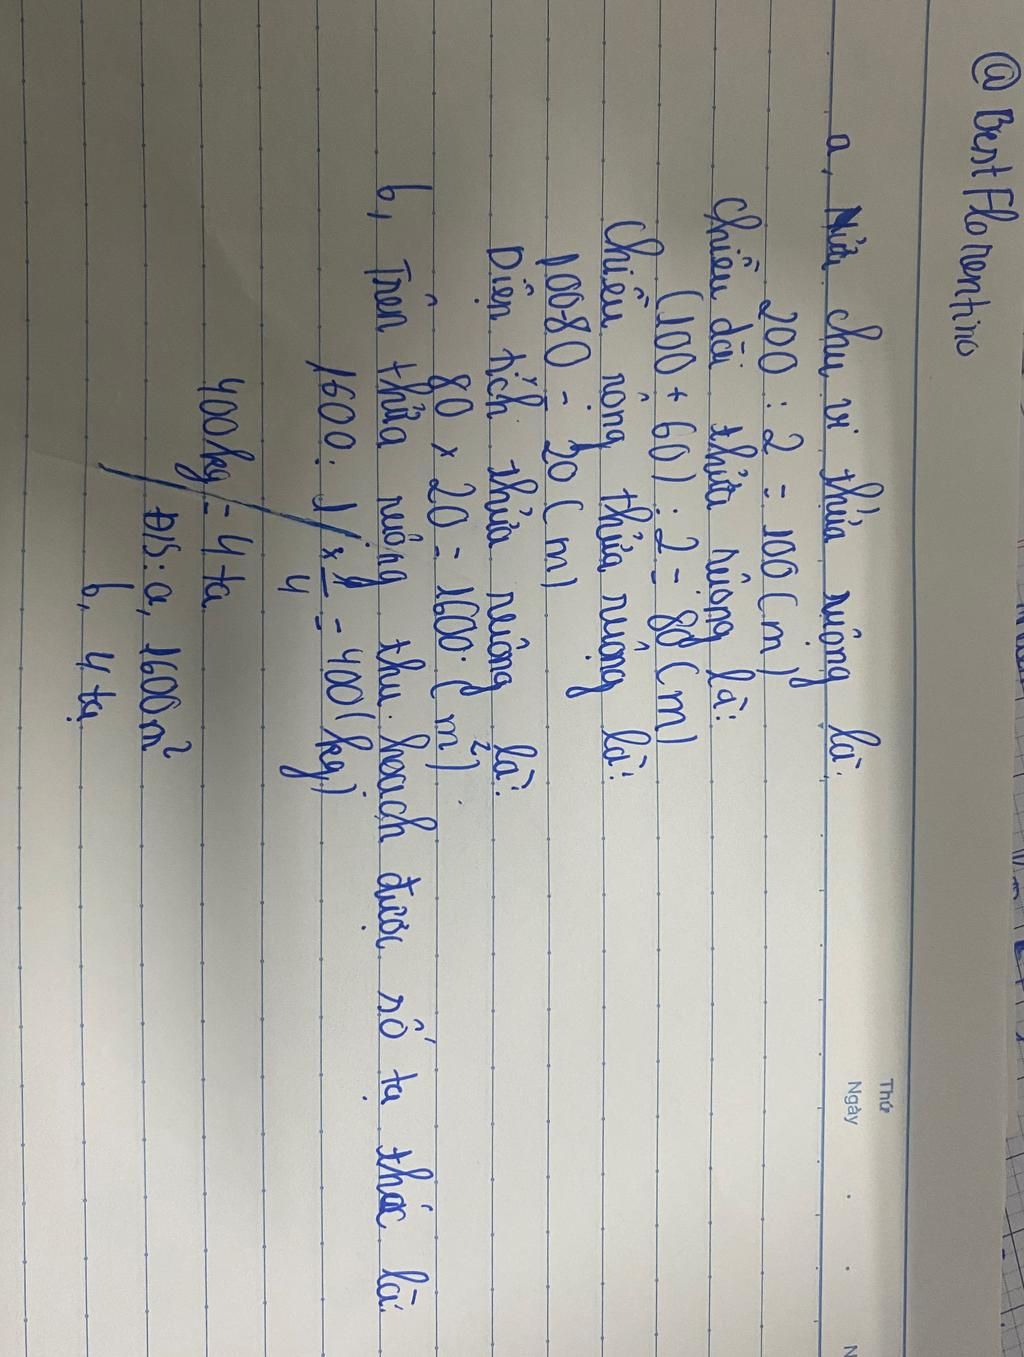 @BestFlorentino
Thứ
Ngày
a, Nửa chu vi thửa ruộng là:
200 : 2 = 100 (m)
Chiều dài thửa ruộng là:
(100 + 60) : 2 = 80 (m)
Chiều rộng thửa ruộng là:
100-80 = 20 (m)
Diện tích thửa ruộng là:
80 x 20 = 1600 (m²)
b, Trên thửa ruộng thu hoạch được số tạ thóc là:
1600 : 1 x 1/4 = 400 (kg)
400kg = 4 tạ
Đ/S: a, 1600m²
b, 4 tạ